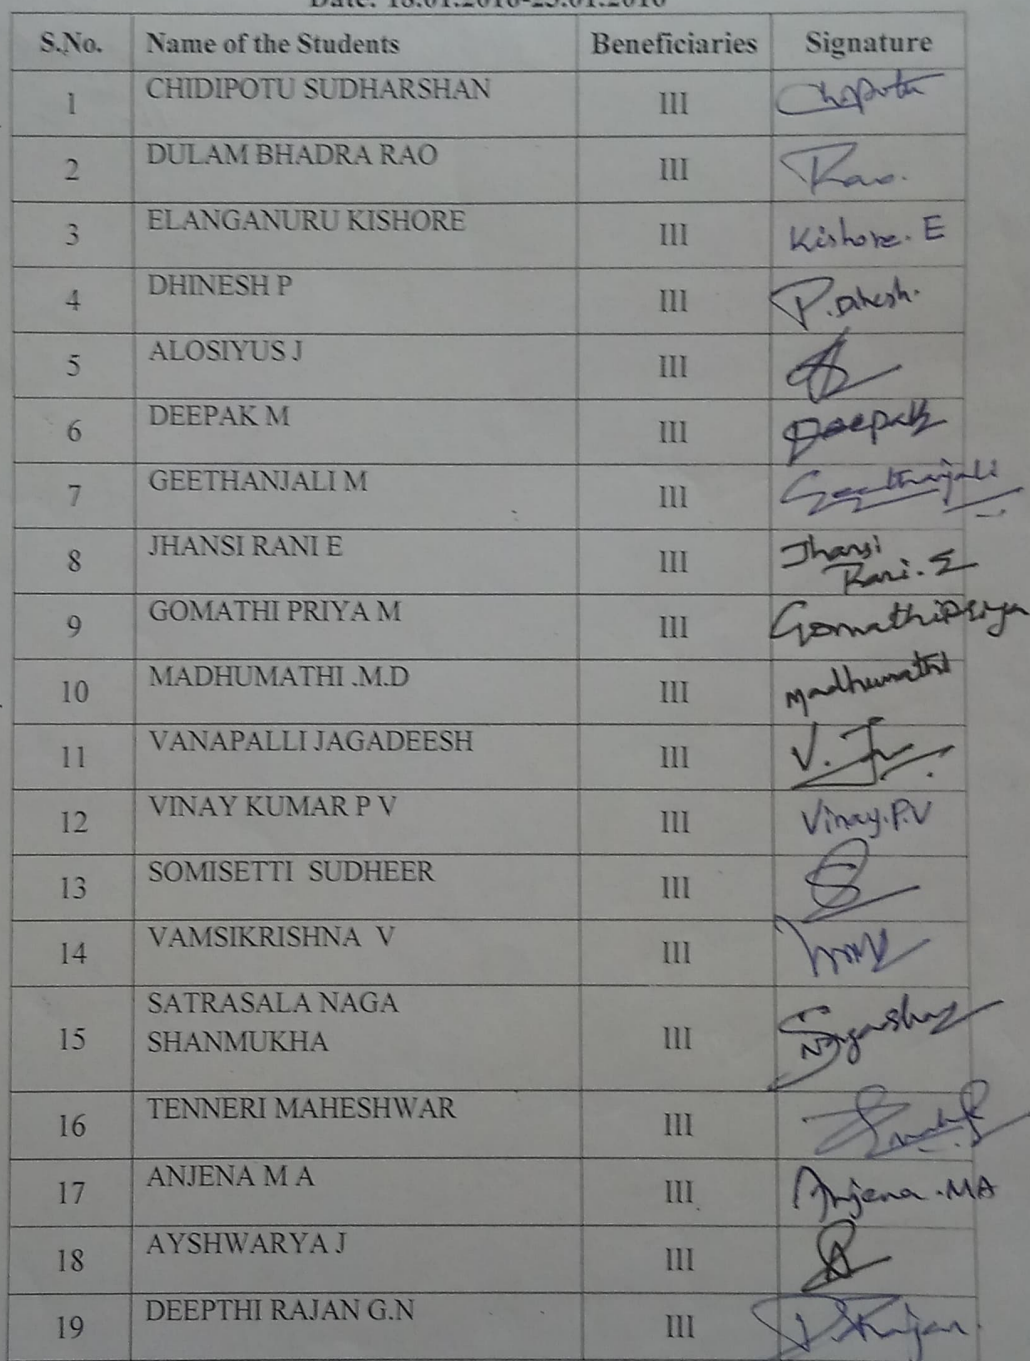 Date: 18.01.2016-25.01.2016
S.No. Name of the Students Beneficiaries Signature
1 CHIDIPOTU SUDHARSHAN III
2 DULAM BHADRA RAO III Rao.
3 ELANGANURU KISHORE III Kishore. E
4 DHINESH P III P. Dhesh.
5 ALOSIYUS J III
6 DEEPAK M III Deepak
7 GEETHANJALI M III Geethanjali
8 JHANSI RANI E III Jhansi
Rani. E
9 GOMATHI PRIYA M III Gomathipriya
10 MADHUMATHI .M.D III Madhumathi
11 VANAPALLI JAGADEESH III
12 VINAY KUMAR P V III Vinay.P.V
13 SOMISETTI SUDHEER III
14 VAMSIKRISHNA V III
15 SATRASALA NAGA
SHANMUKHA III
16 TENNERI MAHESHWAR III
17 ANJENA M A III Anjena.MA
18 AYSHWARYA J III
19 DEEPTHI RAJAN G.N III